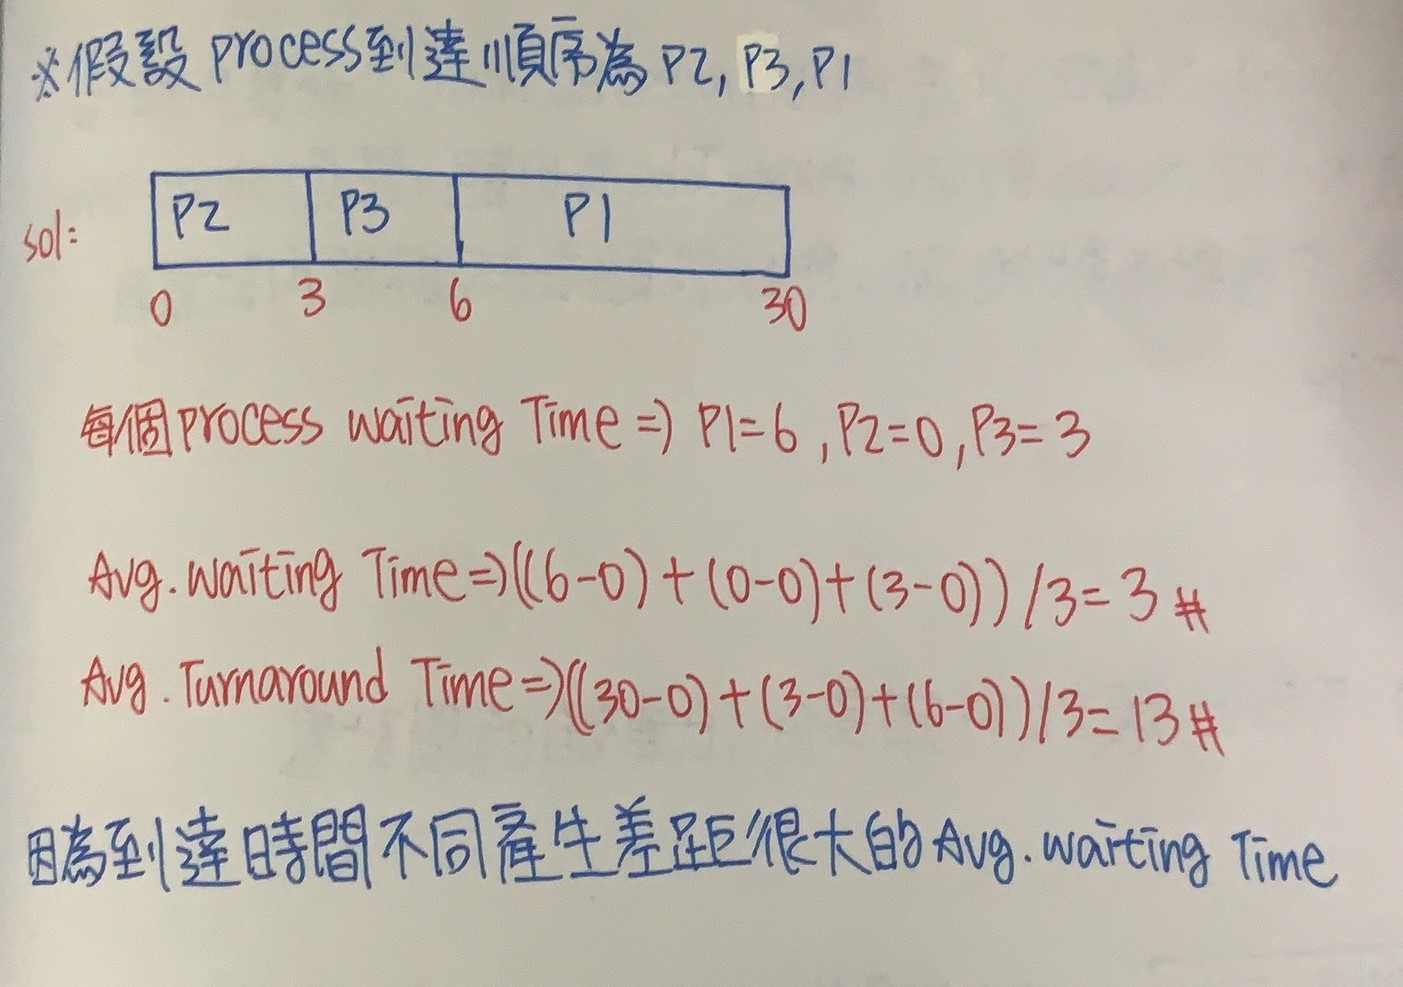 ※假設process到達順序為P2,P3,P1
sol: P2 P3 P1
0 3 6 30
每個process waiting Time=> P1=6,P2=0,P3=3
Avg.waiting Time=>((6-0)+(0-0)+(3-0))/3=3#
Avg.Turnaround Time=>((30-0)+(3-0)+(6-0))/3=13#
因為到達時間不同產生差距很大的Avg.waiting Time